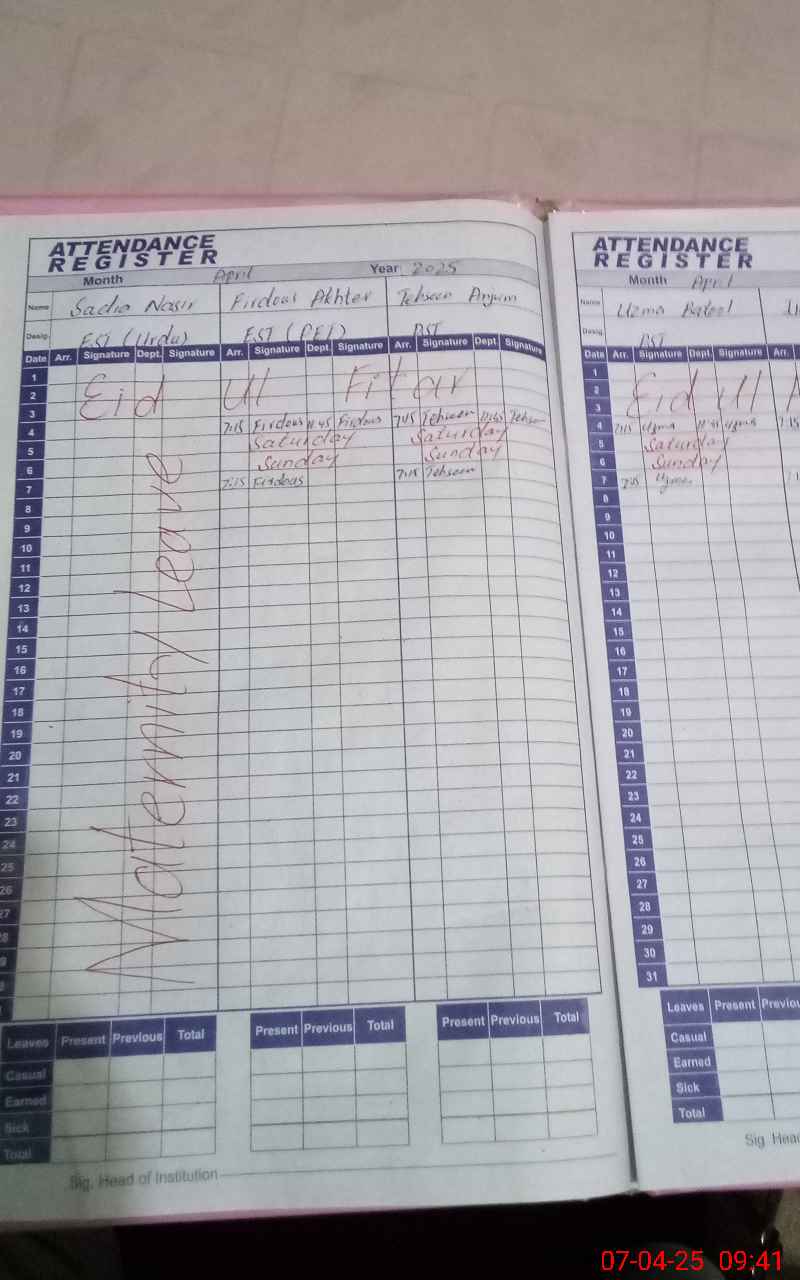 ATTENDANCE
REGISTER
Month April Year 2025
Name Sadia Nasir Firdous Akhter Tehseen Anjum
Desig. EST (Urdu) EST (PET) PST
Date Arr. Signature Dept. Signature Arr. Signature Dept. Signature Arr. Signature Dept. Signature
1
2 Eid Ul Fitar
3
4 7:15 Firdous 11:45 Firdous 7:15 Tehseen 11:45
5 Saturday Saturday
6 Sunday Sunday
7 7:15 Firdous 7:15 Tehseen
8
9
10
11
12
13
14
15
16
17
18
19
20
21
22
23
24
25
26
27
Maternity Leave
Leaves Present Previous Total Present Previous Total Present Previous Total
Casual
Earned
Sick
Total
Sig. Head of Institution
ATTENDANCE
REGISTER
Month April
Name Uzma Batool
Desig. PST
Date Arr. Signature Dept. Signature Arr.
1
2 Eid Ul
3
4 7:15 Uzma 11:45 Uzma 7:15
5 Saturday
6 Sunday
7 7:15 Uzma
8
9
10
11
12
13
14
15
16
17
18
19
20
21
22
23
24
25
26
27
28
29
30
31
Leaves Present Previou
Casual
Earned
Sick
Total
Sig. Hea
07-04-25 09:41